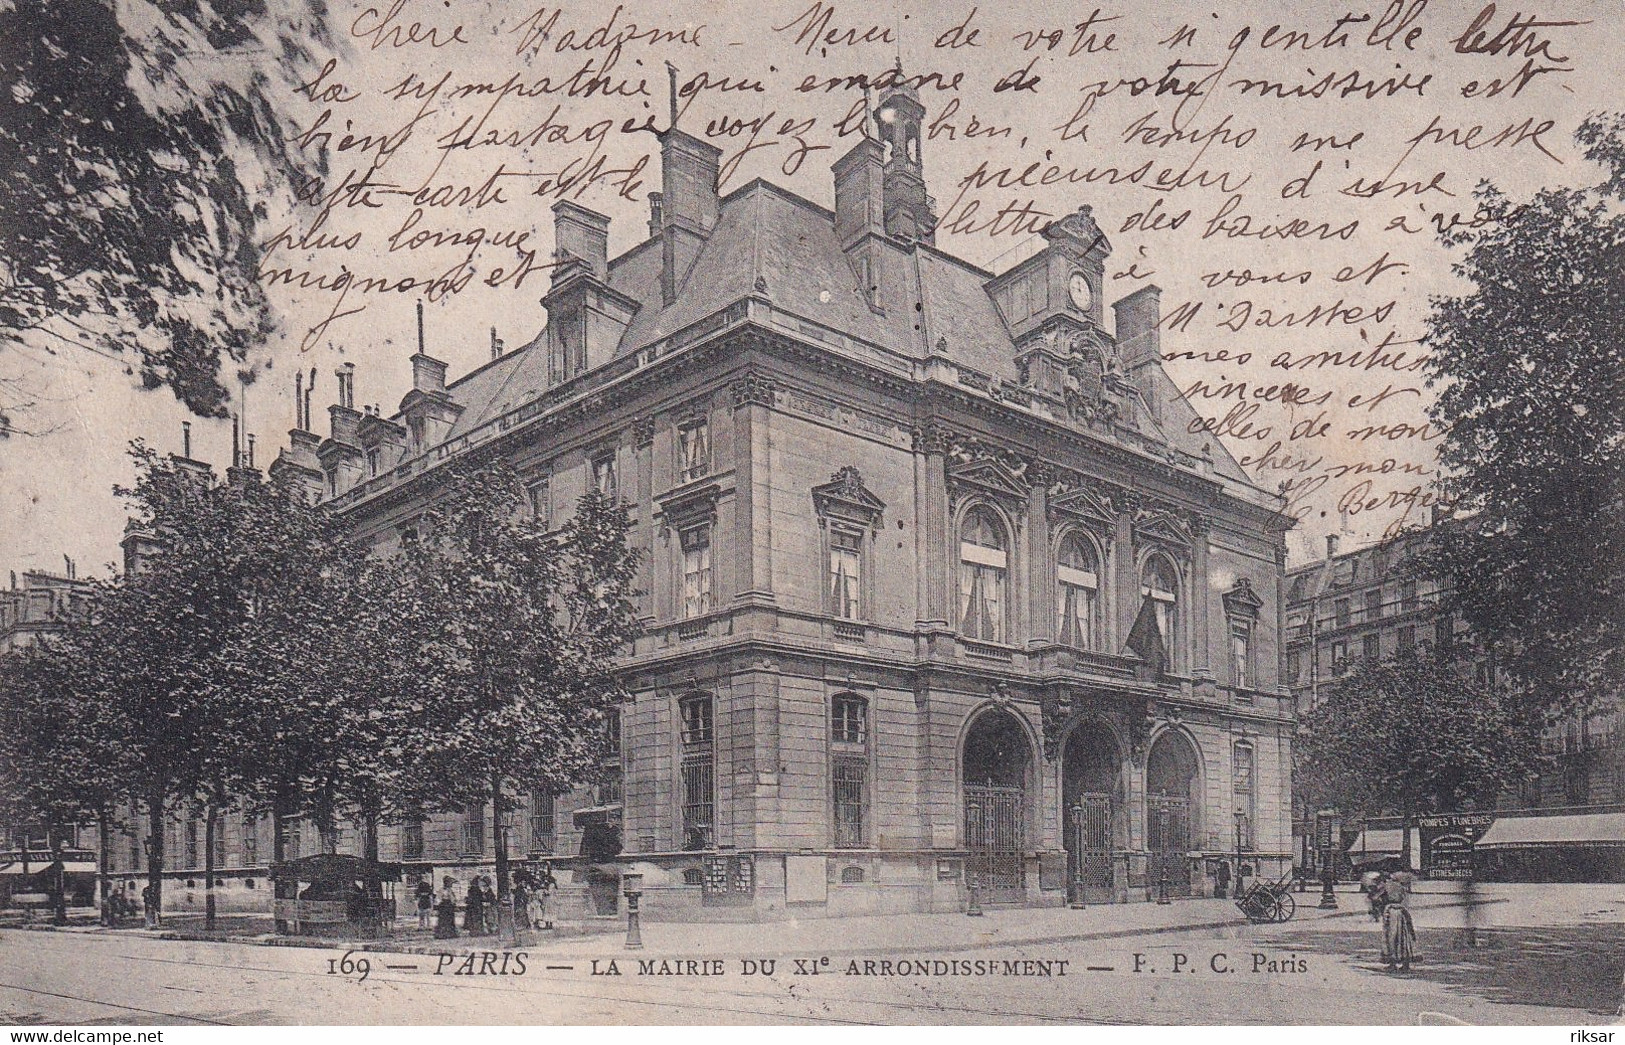 Chère Madame - Merci de votre si gentille lettre
la sympathie qui émane de votre missive est
bien partagée voyez le bien, le temps me presse
cette carte est le précurseur d'une
plus longue lettre, des baisers à vos
mignons et à vous et
M Darttes
mes amitiés
sincères et
celles de mon
cher mon
H. Berge
POMPES FUNÈBRES
LETTRES de DÉCÈS
169 — PARIS — LA MAIRIE DU XIe ARRONDISSEMENT — F. P. C. Paris
riksar